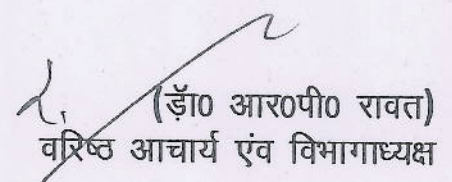 (डॉ0 आर0पी0 रावत)
वरिष्ठ आचार्य एंव विभागाध्यक्ष